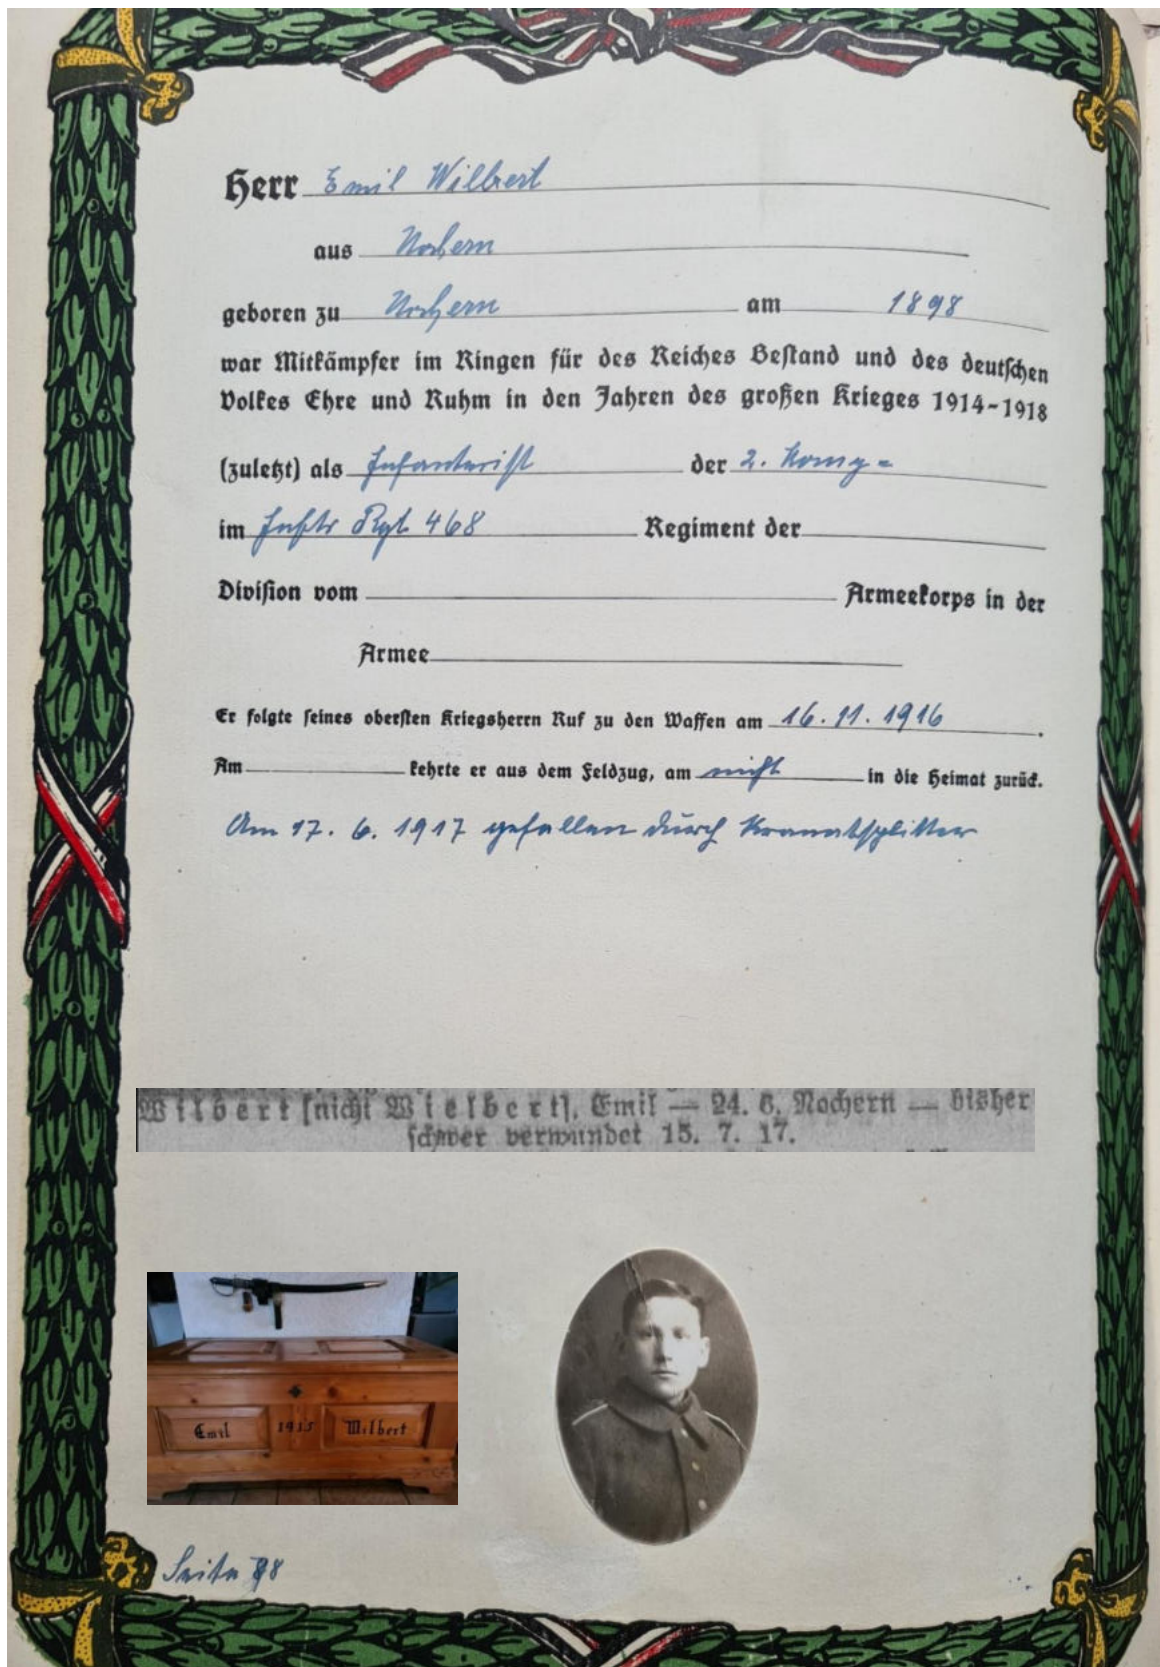 Herr Emil Wilbert
aus Nochern
geboren zu Nochern am 1898
war Mitkämpfer im Ringen für des Reiches Bestand und des deutschen
Volkes Ehre und Ruhm in den Jahren des großen Krieges 1914-1918
(zuletzt) als Infanterist der 2. Komp=
im Inftr Rgt. 468 Regiment der
Division vom Armeekorps in der
Armee
Er folgte seines obersten Kriegsherrn Ruf zu den Waffen am 16.11.1916.
Am kehrte er aus dem Feldzug, am nicht in die Heimat zurück.
Am 17. 6. 1917 gefallen durch Kranatsplitter
Wilbert [nicht Wielbert], Emil — 24. 6. Nochern — bisher
schwer verwundet 15. 7. 17.
Emil 1915 Wilbert
Seite 88